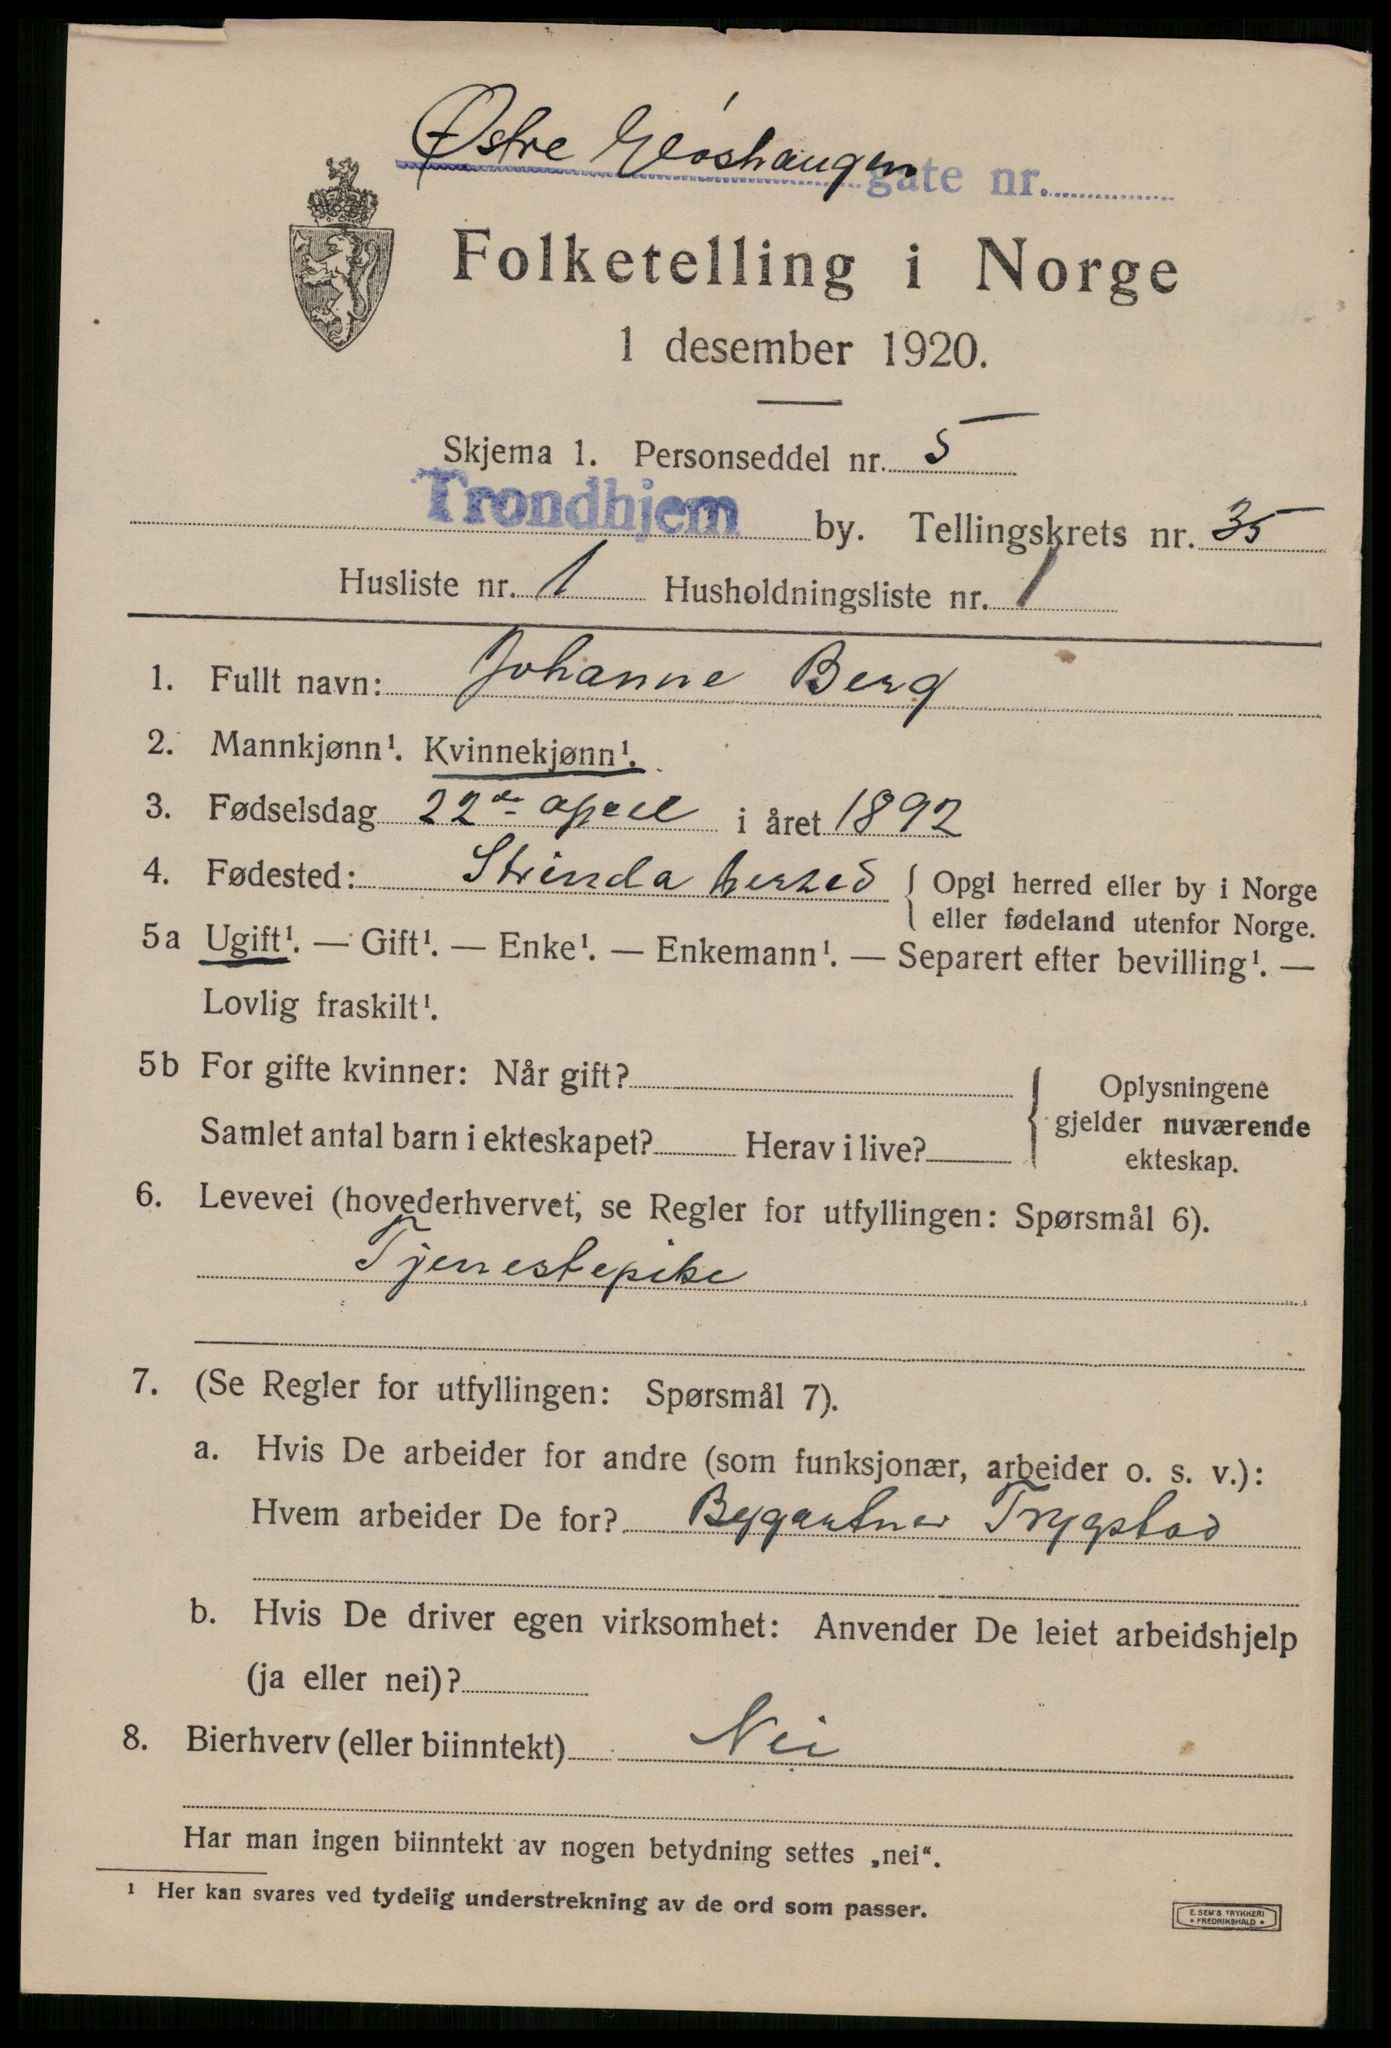 Østre Gløshaugen gate nr.
Folketelling i Norge
1 desember 1920.
Skjema 1. Personseddel nr. 5
Trondhjem by. Tellingskrets nr. 35
Husliste nr. 1 Husholdningsliste nr. 1
1. Fullt navn: Johanne Berg
2. Mannkjønn¹. Kvinnekjønn¹.
3. Fødselsdag 22de april i året 1892
4. Fødested: Strinda herred { Opgi herred eller by i Norge
eller fødeland utenfor Norge.
5a Ugift¹. — Gift¹. — Enke¹. — Enkemann¹. — Separert efter bevilling¹. —
Lovlig fraskilt¹.
5b For gifte kvinner: Når gift?
Samlet antal barn i ekteskapet? Herav i live?
Oplysningene
gjelder nuværende
ekteskap.
6. Levevei (hovederhvervet, se Regler for utfyllingen: Spørsmål 6).
Tjenestepike
7. (Se Regler for utfyllingen: Spørsmål 7).
a. Hvis De arbeider for andre (som funksjonær, arbeider o. s. v.):
Hvem arbeider De for? Bygartner Trygstad
b. Hvis De driver egen virksomhet: Anvender De leiet arbeidshjelp
(ja eller nei)?
8. Bierhverv (eller biinntekt) Nei
Har man ingen biinntekt av nogen betydning settes „nei“.
¹ Her kan svares ved tydelig understrekning av de ord som passer.
E. SEM'S TRYKKERI
• FREDRIKSHALD •